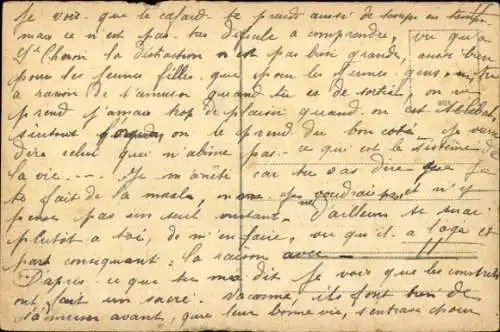 Je vois que le cafard te prend aussi de temps en temps
mais ce n'est pas très dificile a comprendre, vu qu'a
St Chéron la distraction n'est pas bien grande, aussi bien
pour les jeunes filles que pour les jeunes gens,
a raison de t'amuser quand tu es de sortie, on ne
prend jamais trop de plaisir quand on est
surtout on le prend du bon coté Je veux
dire celui qui n'abime pas ce qui est le sistème de
la vie --- Je m'arrête car tu vas dire que je
te fait de la morale, je voudrais et n'y
pense pas un seul instant. D'ailleurs ce serai
plutôt a toi, de m'en faire, vu qu'il a l'age et
part conséquant : la raison avec
D'après ce que tu me dit Je vois que les conscrits
ont fait un sacré vacarme, ils font bien de
s'amuser avant, que leur bonne vie,